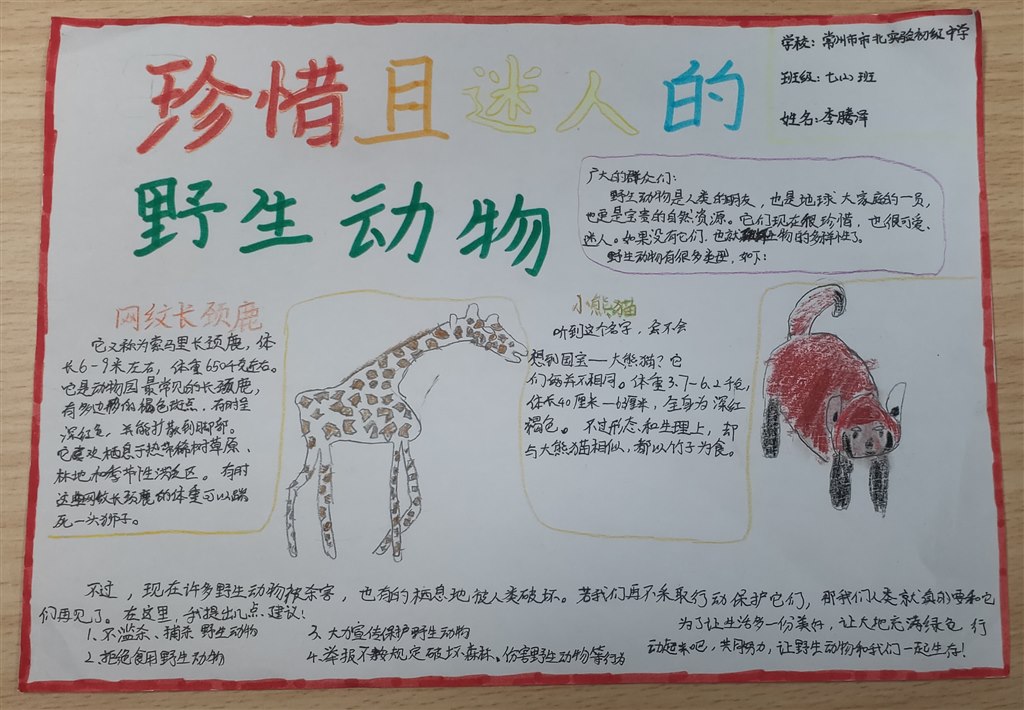 珍惜且迷人的
野生动物
学校:常州市市北实验初级中学
班级:七(6)班
姓名:李腾泽
广大的群众们:
野生动物是人类的朋友,也是地球大家庭的一员,
也更是宝贵的自然资源。它们现在很珍惜,也很可爱、
迷人。如果没有它们,也就生物的多样性了。
野生动物有很多类型,如下:
网纹长颈鹿
它又称为索马里长颈鹿,体
长6-9米左右,体重650千克左右。
它是动物园最常见的长颈鹿,
有多边形的褐色斑点,有时呈
深红色,并能扩散到脚部。
它喜欢栖息于热带稀树草原、
林地和季节性洪泛区。有时
这些网纹长颈鹿的体重可以踹
死一头狮子。
小熊猫
听到这个名字,会不会
想到国宝—大熊猫?它
们俩并不相同。体重3.7-6.2千克,
体长40厘米-63厘米,全身为深红
褐色。不过形态和生理上,却
与大熊猫相似,都以竹子为食。
不过,现在许多野生动物被杀害,也有的栖息地被人类破坏。若我们再不采取行动保护它们,那我们人类就真的要和它
们再见了。在这里,我提出几点建议:
1、不滥杀、捕杀野生动物
2、拒绝食用野生动物
3、大力宣传保护野生动物
4、举报不敷规定破坏森林、伤害野生动物等行为
为了让生活多一份美好,让大地充满绿色,行
动起来吧,共同努力,让野生动物和我们一起生存!